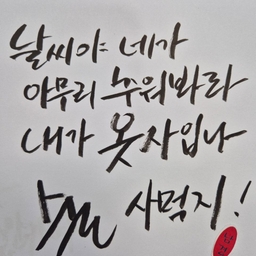 날씨야 네가
아무리 추워봐라
내가 옷사입나
술 사먹지!